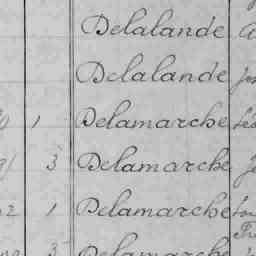 Delalande
Delalande
1 Delamarche
3 Delamarche
1 Delamarche
3 Delamarche